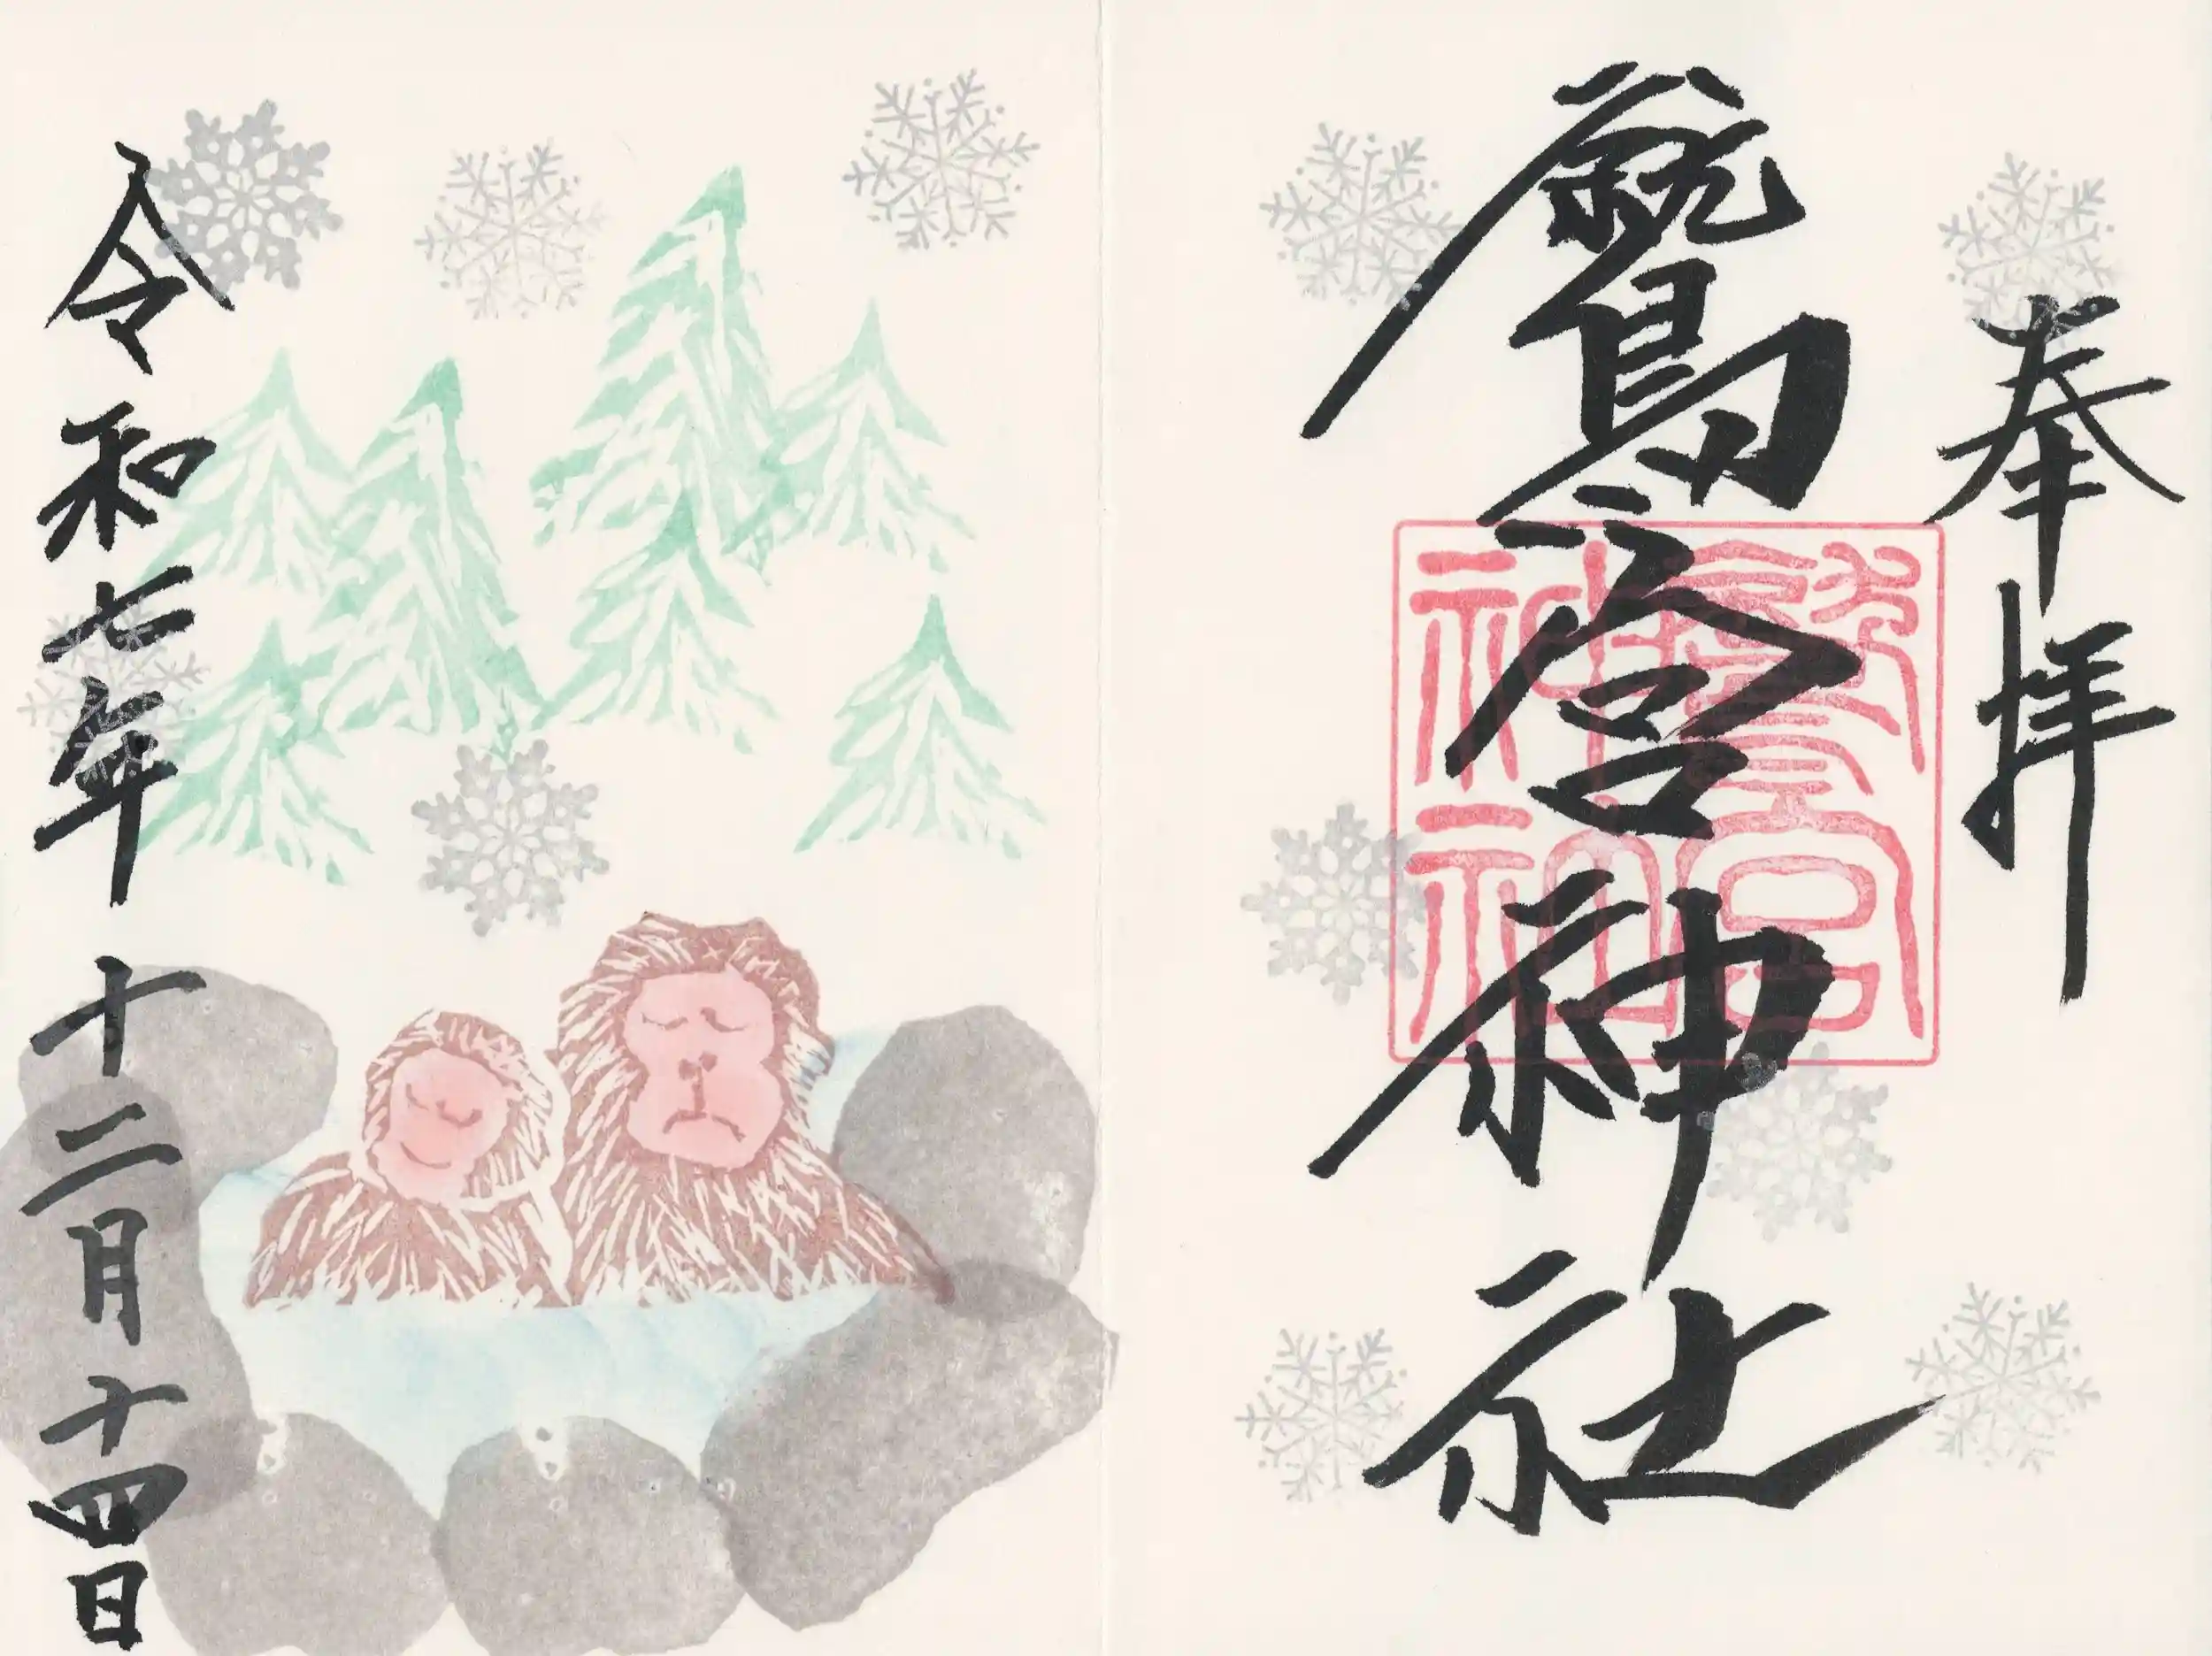 奉拝
鷲宮神社
令和七年十二月十四日